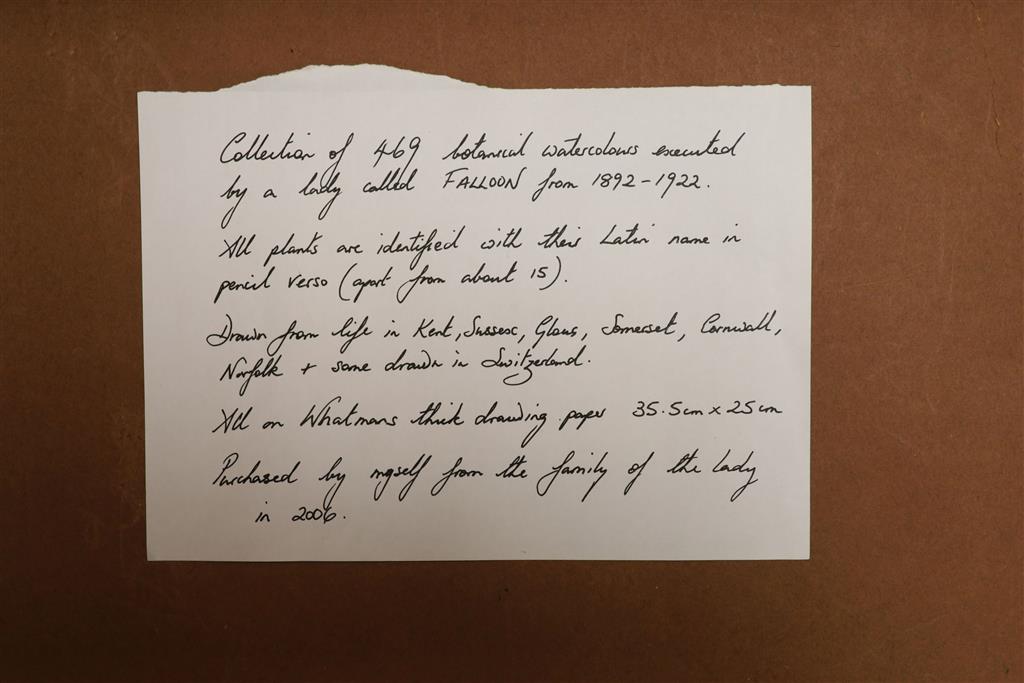 Collection of 469 botanical watercolours executed
by a lady called FALLOON from 1892-1922.
All plants are identified with their Latin name in
pencil verso (apart from about 15).
Drawn from life in Kent, Sussex, Glous, Somerset, Cornwall,
Norfolk + some drawn in Switzerland.
All on Whatmans thick drawing paper 35.5cm x 25cm
Purchased by myself from the family of the lady
in 2006.